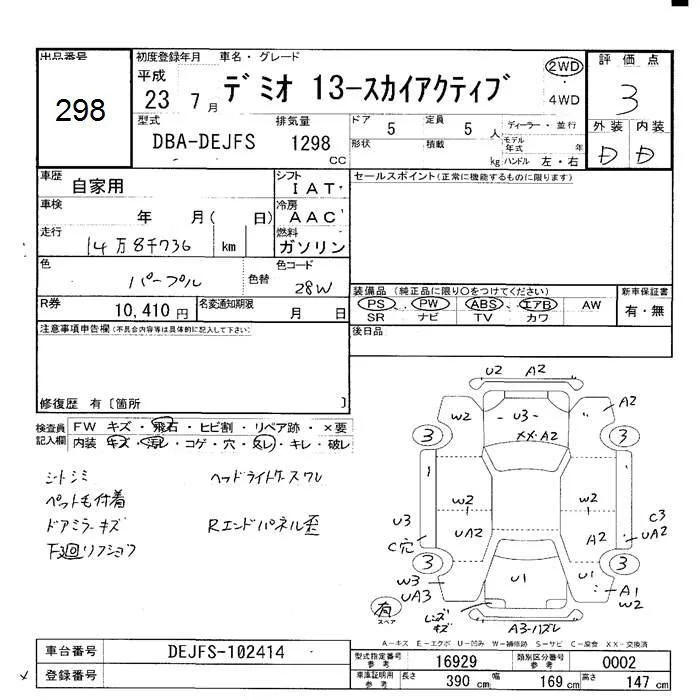 出品番号
298
初度登録年月
平成
23 7月
車名・グレード
デミオ 13-スカイアクティブ
2WD
4WD
評価点
3
外装 内装
D D
型式
DBA-DEJFS
排気量
1298
CC
ドア
5
定員
5 人
形状
積載
kg
ディーラー・並行
モデル年式 年
ハンドル 左・右
車歴
自家用
シフト
IAT
車検
年 月( 日)
冷房
AAC
走行
14万8千736 km
燃料
ガソリン
色
パープル
色替
色コード
28W
R券
10,410円
名変通知期限
月 日
セールスポイント(正常に機能するものに限ります)
装備品(純正品に限り○をつけてください)
PS PW ABS エアB AW
SR ナビ TV カワ
新車保証書
有・無
後日品
注意事項申告欄(不具合内容等は具体的に記入して下さい)
修復歴 有〔箇所 〕
検査員記入欄
FW キズ・飛石・ヒビ割・リペア跡・×要
内装 キズ・汚レ・コゲ・穴・スレ・キレ・破レ
シートシミ
ペット毛付着
ドアミラーキズ
F廻リフショク
ヘッドライトケースワレ
Rエンドパネル歪
U2 A2
W2
U3
XX・A2
A2
3
3
W2
W2
U3
UA2
A2
C3
UA2
C穴
3
3
W3
UA3
U1
U1
A1
W2
有
スペア
レンズキズ
A3・ハズレ
A-キズ E-エクボ U-凹み W-補修跡 S-サビ C-腐食 XX-交換済
車台番号
DEJFS-102414
登録番号
型式指定番号
参考
16929
類別区分番号
参考
0002
車庫証明用
参考
長さ
390 cm
幅
169 cm
高さ
147 cm